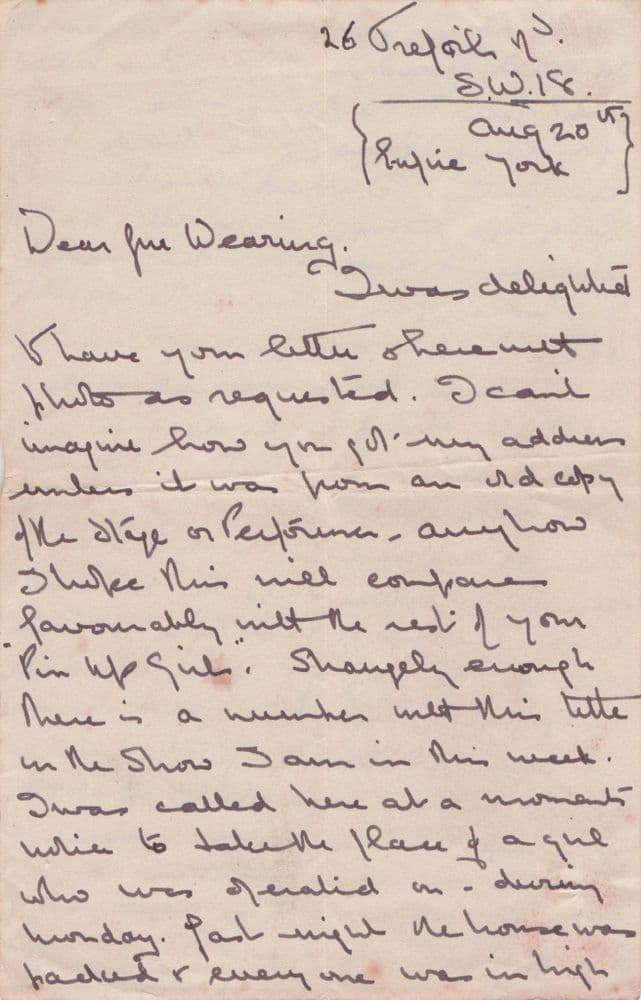 26 Trefoil Rd.
S.W.18.
Aug 20th
Empire York
Dear Wearing.
I was delighted
to have your letter & herewith
photo as requested. I can't
imagine how you got my address
unless it was from an old copy
of the Stage or Performer - anyhow
I hope this will compare
favourably with the rest of your
"Pin Up Girls". Strangely enough
there is a number with this title
in the show I am in this week.
I was called here at a moments
notice to take the place of a girl
who was operated on - during
Monday. Last night the house was
packed & every one was in high